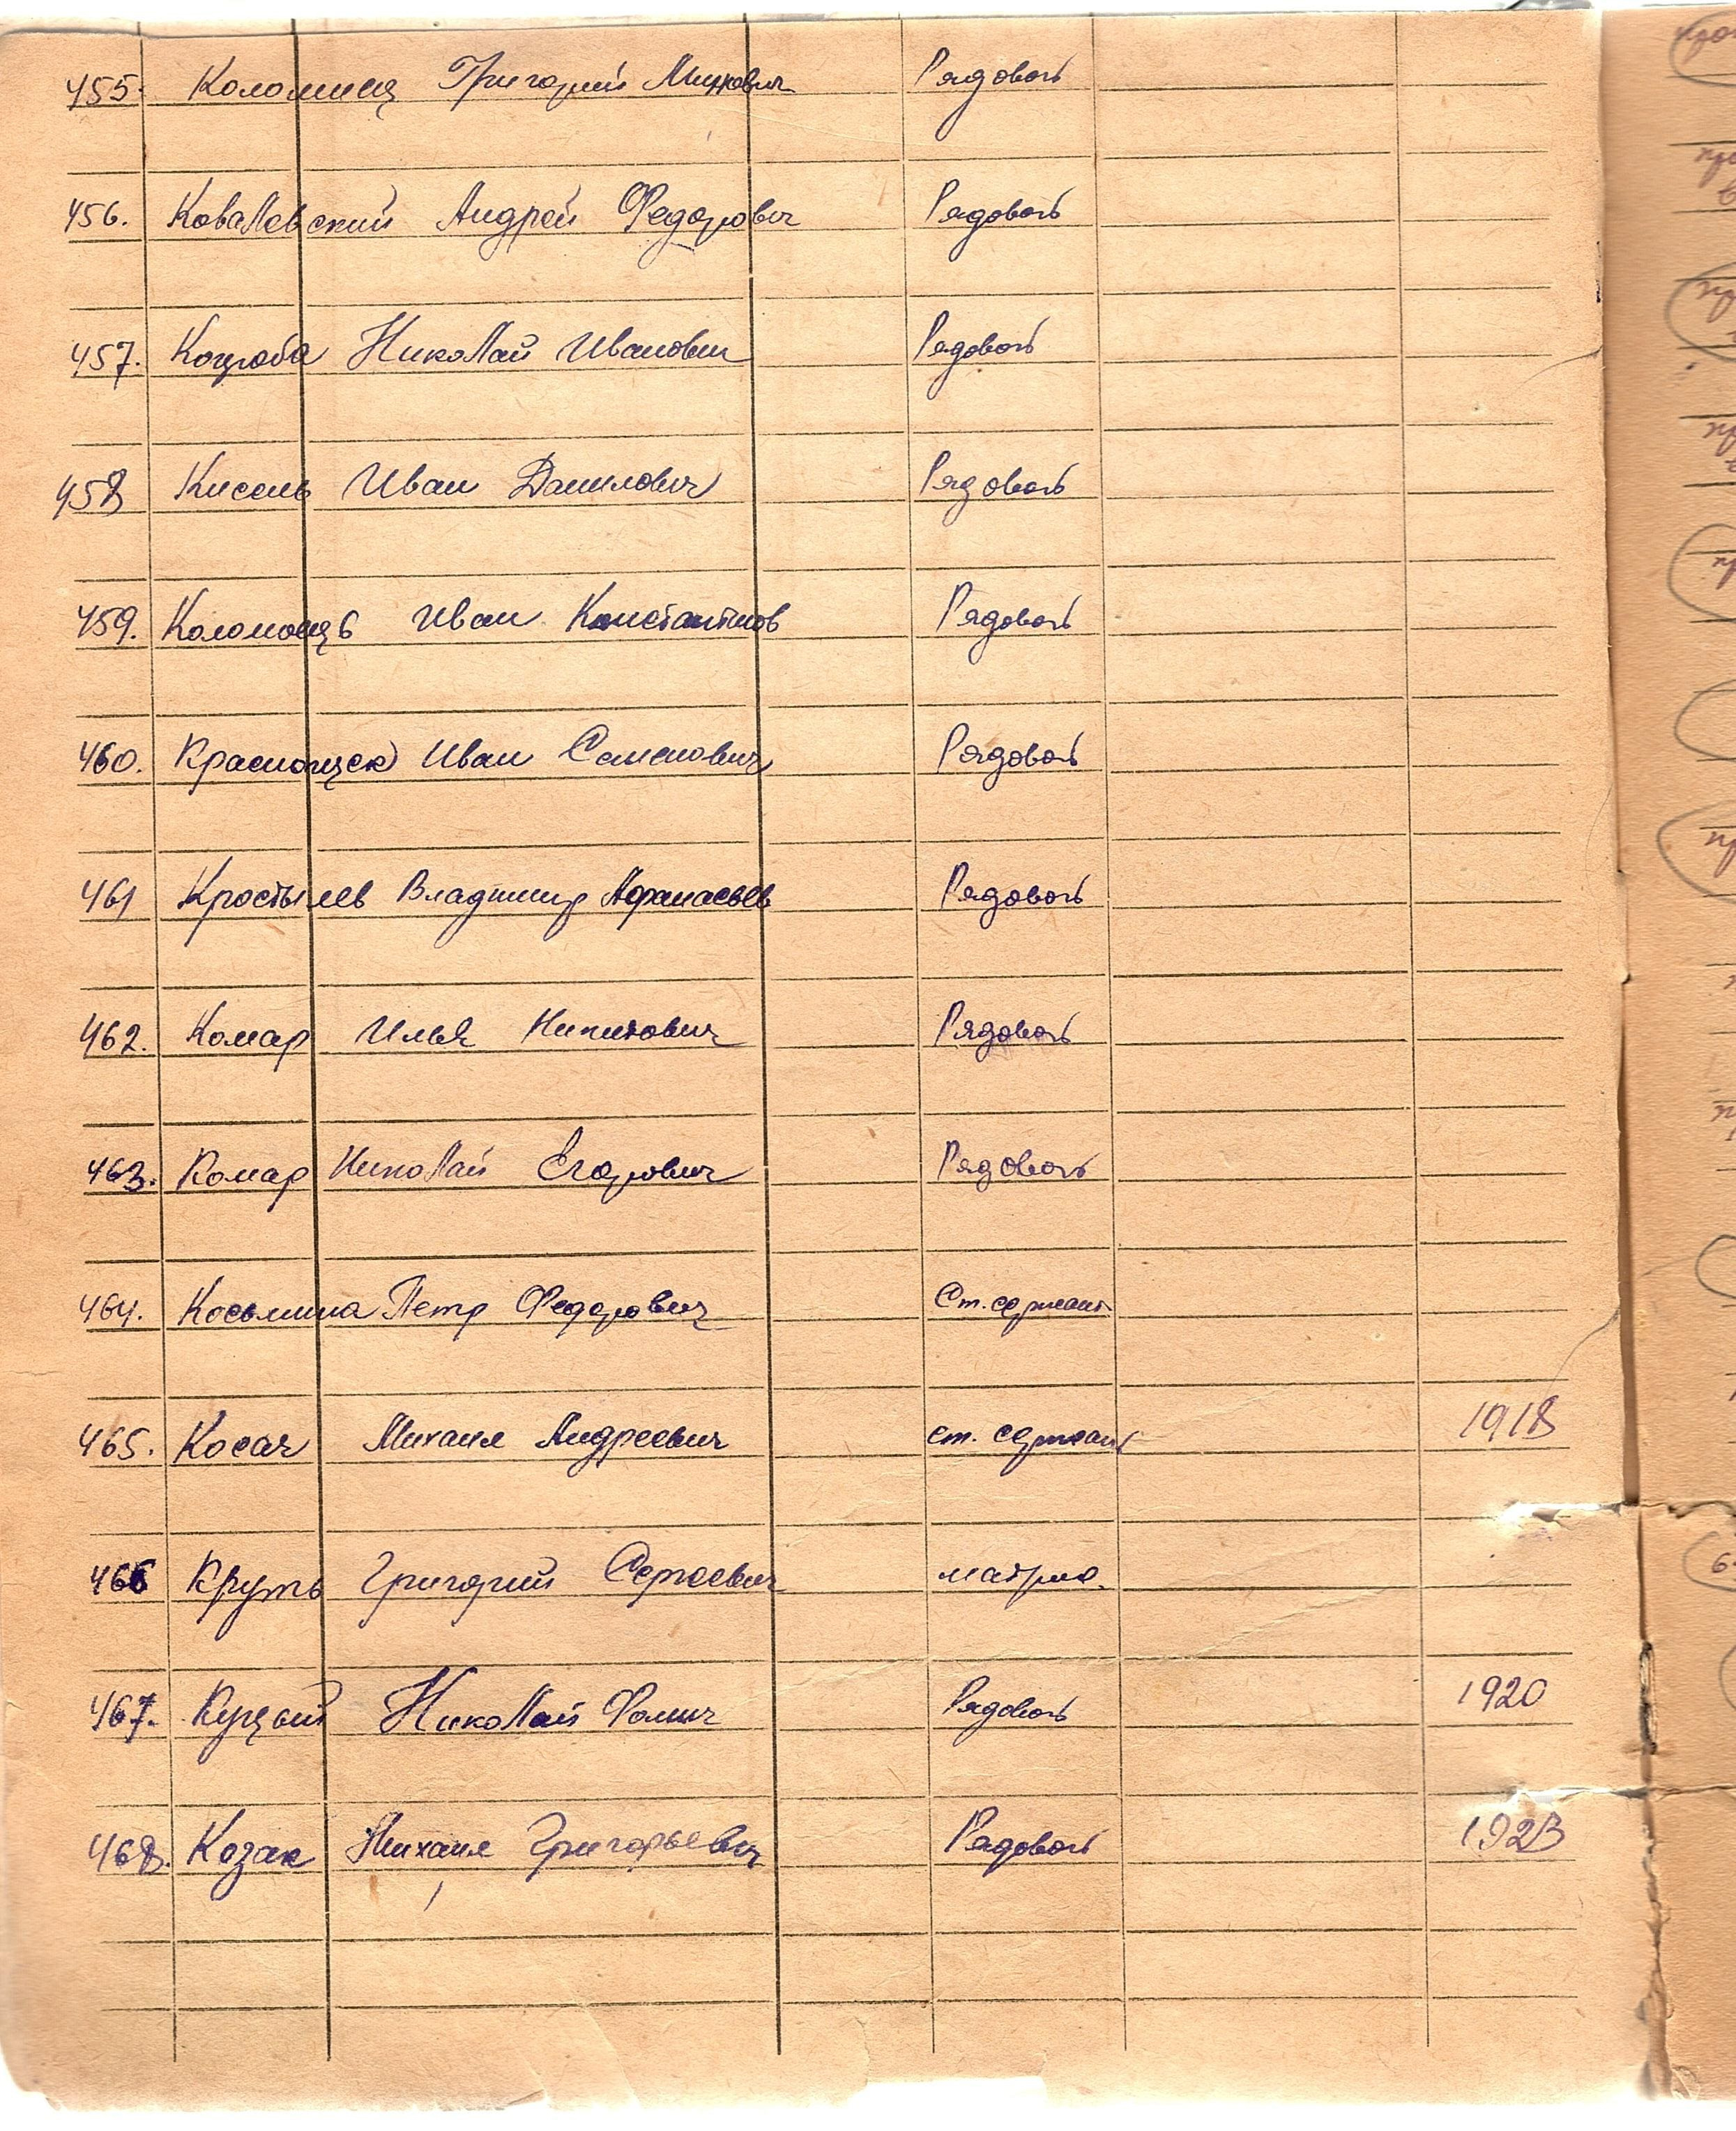 455. Коломиец Григорий Рядовой
456. Ковалевский Андрей Федорович Рядовой
457. Коцюба Николай Иванович Рядовой
458 Кисель Иван Данилович Рядовой
459. Иван Константинов Рядовой
460. Иван Семенович Рядовой
461 Костылев Владимир Афанасьев Рядовой
462. Комар Илья Никитович Рядовой
463. Комар Николай Егорович Рядовой
464. Косьмина Петр Федорович Ст. сержант
465. Косач Михаил Андреевич ст. сержант 1918
466 Круть Григорий Сергеевич матрос
467. Куцый Николай Фомич Рядовой 1920
468. Козак Михаил Григорьевич Рядовой 1923